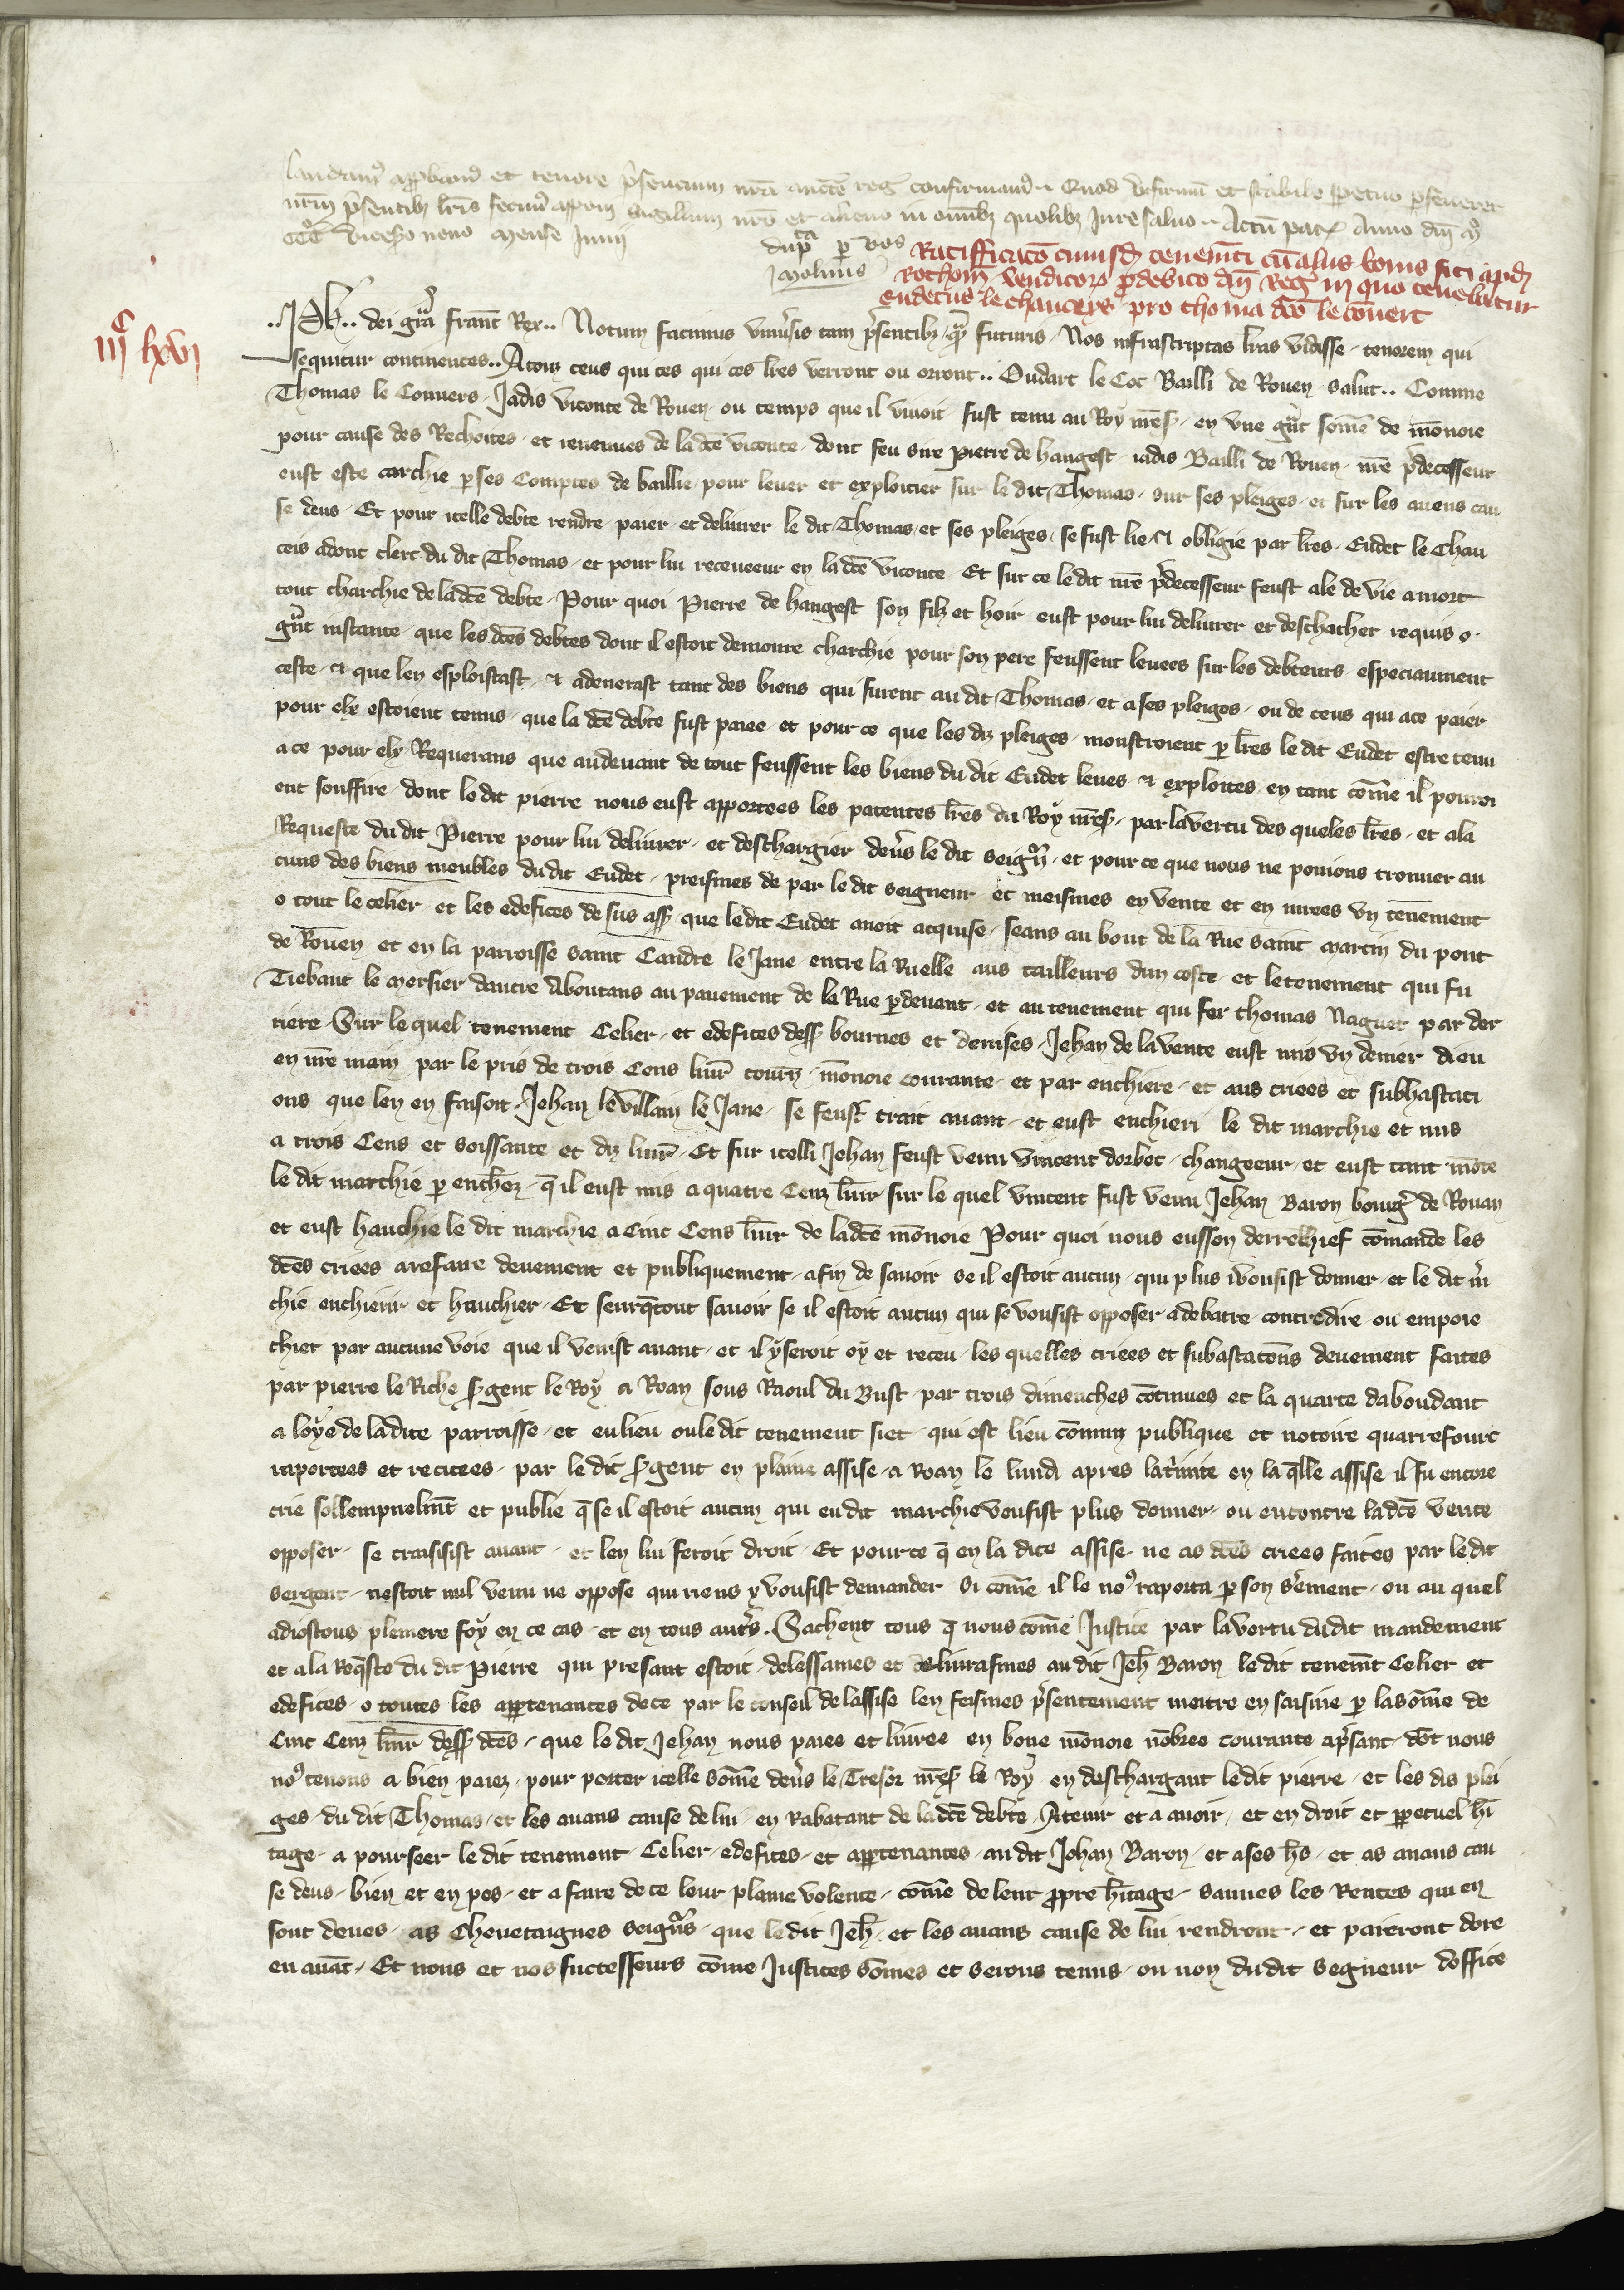 laudam⁹ approbam⁹ et tenore p̄sencium nrā auctē reg̃ confirmam⁹ Quod ut firmū et stabile ppetuo perseveret
nrm̄ p̄sentib; lr̄is fecim⁹ apponi sigillum nrō et alieno in omib; quolib; Jure salvo Actū par̃ Anno dnī M⁰
CCC⁰ vicesio nono Mense Junij
dupᵗᵃ p̱ vos
Molinus
Ratifficacō cuiusd̄ tenemēti cū aliis bonis siti apud
Rothom̄ venditorꝝ pro debito dnī Reg̃ in quo tenebatur
Eudetus le Chauceys pro thoma dc̄o le Cōuert
IIIᶜ lxvj
..Ph̄.. dei grā franc̄ Rex.. Notum facimus vniu̓sis tam p̄sentib; q̃ȝ futuris Nos infrascriptas lr̄as vidisse tenorem qui
sequitur continentes.. A touz ceus qui ces qui ces lr̄es verront ou orront.. Oudart le Coc Bailli de Rouen salut.. Comme
Thomas le Conuers Jadis viconte de Rouen ou temps que il viuoit fust tenu au Roy nr̄eẞ en vne grāt som̄e de mōnoie
pour cause des Rechoites et reuenues de la dcē viconte dont feu sire Pierre de hangest iadis Bailli de Rouen nr̄e p̄decesseur
eust este carchie p ses Comptes de baillie pour leuer et exploitier sur le dit Thomas sur ses pleiges et sur les aiens cau
se deus Et pour icelle debte rendre paier et deliurer le dit Thomas et ses pleiges se fust lie et obligie par lr̄es Eudet le Chau
ceis adont clerc du dit Thomas et pour lui receueeur en la dcē viconte Et sur ce le dit nr̄e p̄decesseur feust ale de vie a mort
tout charchie de la dcē debte Pour quoi Pierre de hangest son filz et hoir eust pour lui deliurer et deschachier requis o
grāt instance que les dcēs debtes dont il estoit demoure charchie pour son pere feussent leuees sur les debteurs especiaument
ceste et que len esploistast et adenerast tant des biens qui furent au dit Thomas et a ses pleiges ou de ceus qui a ce paier
pour elx estoient tenus que la dcē debte fust paiee et pour ce que les diz pleiges monstroient p lr̄es le dit Eudet estre tenu
a ce pour elx Requerans que audeuant de tout feussent les biens du dit Eudet leues et exploites en tant cōme il pouroi
ent souffire dont le dit pierre nous eust apportees les patentes lr̄es du Roy nr̄eẞ par la vertu des queles lr̄es et a la
Requeste du dit Pierre pour lui deliurer et deschargier deu̓s le dit seign̄r et pour ce que nous ne poiuons trouuer au
cuns des biens meubles du dit Eudet preismes de par le dit seigneur et meismes en vente et en criees vn tenement
o tout le celier et les edefices de sus aſſ que le dit Eudet auoit acquise seans au bout de la Rue saint Martin du pont
de Rouen et en la parroisse saint Candre le Jane entre la Ruelle aus tailleurs dun coste et le tenement qui fu
Tiebaut le Mersier dautre Aboutans au pauement de la Rue p deuant et au tenement qui fer thomas Naguet par der
riere Sur le quel tenement Celier et edefices desſ bournes et deuises Jehan de la vente eust mis vn denier dieu
en nr̄e main par le pris de trois Cens liur̄ tourn̄ mōnoie courante et par enchiere et aus criees et subhastaci
ons que len en faisoit Jehan le villain le Jane se feust trait auant et eust enchieri le dit marchie et mis
a trois Cens et soissante et diz liur̄ Et sur icelli Jehan feust venu Vincent dorbec changeeur et eust tant mōte
le dit marchie p enchez̄ q̄ il eust mis a quatre Cenz liur̄ sur le quel vincent fust venu Jehan Baron bourg̃ de Rouan
et eust hauchie le dit marchie a Cinc Cens liur̄ de la dcē mōnoie Pour quoi nous eusson derrechief cōmande les
dcēs criees a refaire deuement et publiquement afin de sauoir se il estoit aucun qui plus i vousist donner et le dit m̄r
chie enchierir et hauchier Et seurq̄tout sauoir se il estoit aucun qui se vousist opposer a debatre contredire ou empoie
chier par aucune voie que il venist auant et il y seroit oy et receu les quelles criees et subastacōns deuement faites
par pierre le Riche ẞgent le Roy a Roan sous Raoul du Bust par trois dimenches cōtinues et la quarte dabondant
a loye de la dite parroisse et en lieu ou le dit tenement siet qui est lieu cōmun publique et notoire quarrefourt
raportees et recitees par le dit ẞgent en plaine assise a Roan le lundi apres la t̓inite en la q̄lle assise il fu encore
crie sollempnelmt̄ et publie q̄ se il estoit aucun qui eu dit marchie vousist plus donner ou encontre la dcē vente
opposer se traisisist auant et len lui feroit droit Et pource q̄ en la dite assise ne as dcēs criees faites par le dit
sergent nestoit nul venu ne oppose qui riens y vousist demander Si cōme il le no⁹ raporta p son s̓ement ou au quel
adioustons pleniere foy en ce cas et en tous aut̓s. Sachent tous q̄ nous cōme Justice par la vertu du dit mandement
et a la Req̄ste du dit Pierre qui presant estoit delessames et deliurasmes au dit Jeh̄ Baron le dit tenemt̄ Celier et
edefices o toutes les appartenances de ce par le conseil de lassise len feismes p̄sentement mettre en saisine p la sōme de
Cinc Cenz liur̄ desſ dcēs que le dit Jehan nous paiee et liuree en bone mōnoie nōbree courante a p̄sant dōt nous
no⁹ tenons a bien paiez pour porter icelle sōme deu̓s le Tresor nr̄eẞ le Roy en deschargant le dit pierre et les dis plei
ges du dit Thomas et les aians cause de lui en Rabatant de la dcē debte A tenir et a auoir et en droit et ppetuel h̓i
tage a pourseer le dit tenement Celier edefices et appartenances au dit Jehan Baron et a ses h̄s et as aians cau
se deus bien et en pes et a faire de ce leur plaine volente cōme de leur propre h̓itage sauues les Rentes qui en
sont deues as Cheuetaignes seign̄rs que le dit Jeh̄ et les aians cause de lui rendront et paieront dore
en auāt Et nous et nos successeurs cōme Justices sōmes et serons tenus ou non du dit segneur doffice